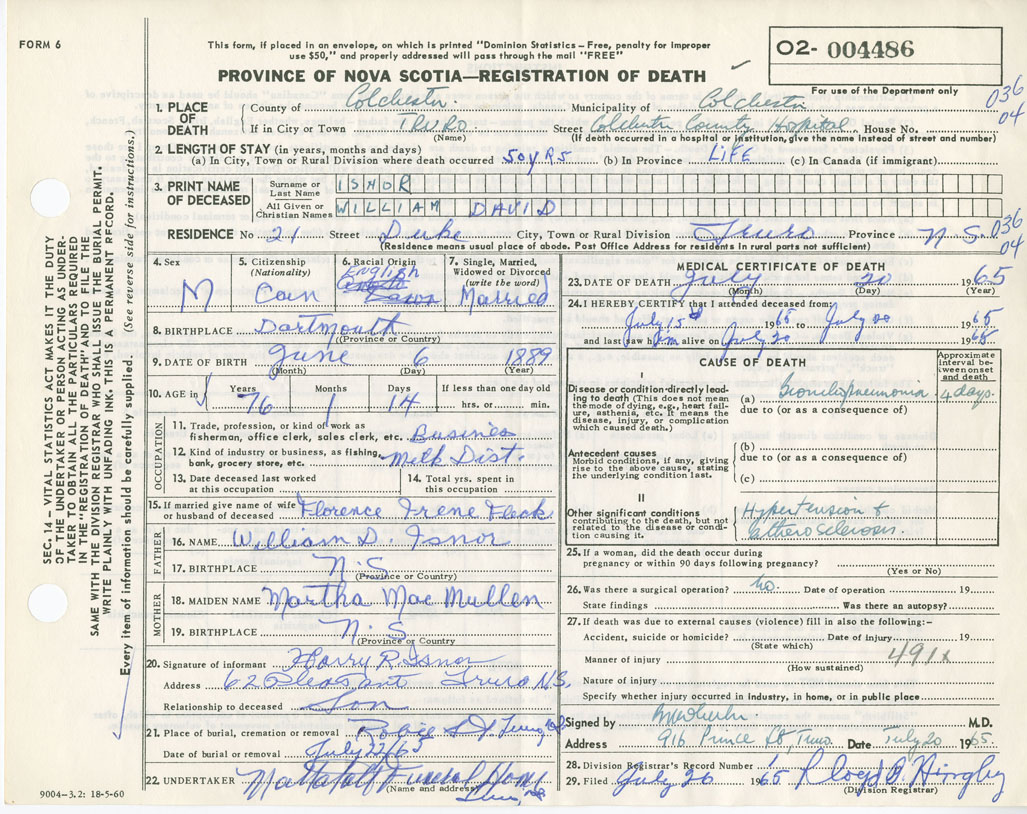 FORM 6
This form, if placed in an envelope, on which is printed "Dominion Statistics – Free, penalty for improper
use $50," and properly addressed will pass through the mail "FREE"
O2- 004486
PROVINCE OF NOVA SCOTIA—REGISTRATION OF DEATH
For use of the Department only
036
04
1. PLACE OF DEATH
County of Colchester. Municipality of Colchester
If in City or Town TRURO Street Colchester County Hospital House No.
(Name) (If death occurred in a hospital or institution, give the name instead of street and number)
2. LENGTH OF STAY (in years, months and days)
(a) In City, Town or Rural Division where death occurred 50 YRS (b) In Province LIFE (c) In Canada (if immigrant)
3. PRINT NAME OF DECEASED
Surname or Last Name ISNOR
All Given or Christian Names WILLIAM DAVID
RESIDENCE No 21 Street Duke City, Town or Rural Division Truro Province N.S.
036
04
(Residence means usual place of abode. Post Office Address for residents in rural parts not sufficient)
4. Sex M
5. Citizenship (Nationality) Can
6. Racial Origin English
7. Single, Married, Widowed or Divorced (write the word) Married
8. BIRTHPLACE Dartmouth
(Province or Country)
9. DATE OF BIRTH June 6 1889
(Month) (Day) (Year)
10. AGE in Years Months Days If less than one day old
76 1 14 hrs. or min.
OCCUPATION
11. Trade, profession, or kind of work as
fisherman, office clerk, sales clerk, etc. Busines
12. Kind of industry or business, as fishing,
bank, grocery store, etc. Milk Dist.
13. Date deceased last worked at this occupation
14. Total yrs. spent in this occupation
15. If married give name of wife or husband of deceased Florence Irene Fleck
FATHER
16. NAME William D. Isnor
17. BIRTHPLACE N.S
(Province or Country)
MOTHER
18. MAIDEN NAME Martha MacMullen
19. BIRTHPLACE N.S
(Province or Country)
20. Signature of informant Harry R. Isnor
Address 62 Pleasant Truro N.S.
Relationship to deceased Son
21. Place of burial, cremation or removal Robie St Truro
Date of burial or removal July 22/65
22. UNDERTAKER Mattatall Funeral Home
(Name and address) Truro, NS
9004-3.2: 18-5-60
MEDICAL CERTIFICATE OF DEATH
23. DATE OF DEATH July 20 1965
(Month) (Day) (Year)
24. I HEREBY CERTIFY that I attended deceased from:
July 15 1965 to July 20 1965
and last saw him alive on July 20 1965
CAUSE OF DEATH
Approximate interval between onset and death
I
Disease or condition directly leading to death (This does not mean the mode of dying, e.g., heart failure, asthenia, etc. It means the disease, injury, or complication which caused death)
(a) Bronchopneumonia 4 days.
due to (or as a consequence of)
Antecedent causes
Morbid conditions, if any, giving rise to the above cause, stating the underlying condition last.
(b)
due to (or as a consequence of)
(c)
II
Other significant conditions
contributing to the death, but not related to the disease or condition causing it.
Hypertension &
Atherosclerosis.
25. If a woman, did the death occur during
pregnancy or within 90 days following pregnancy?
(Yes or No)
26. Was there a surgical operation? No. Date of operation 19
State findings Was there an autopsy?
27. If death was due to external causes (violence) fill in also the following:-
Accident, suicide or homicide? Date of injury 19
(State which)
Manner of injury 491x
(How sustained)
Nature of injury
Specify whether injury occurred in industry, in home, or in public place
Signed by M.D.
Address 916 Prince St, Truro Date July 20 1965.
28. Division Registrar's Record Number
29. Filed July 26 1965
(Division Registrar)
SEC. 14 – VITAL STATISTICS ACT MAKES IT THE DUTY
OF THE UNDERTAKER OR PERSON ACTING AS UNDER-
TAKER TO OBTAIN ALL THE PARTICULARS REQUIRED
IN THE "REGISTRATION OF DEATH" AND TO FILE THE
SAME WITH THE DIVISION REGISTRAR WHO SHALL ISSUE THE BURIAL PERMIT.
WRITE PLAINLY WITH UNFADING INK. THIS IS A PERMANENT RECORD.
Every item of information should be carefully supplied. (See reverse side for instructions.)